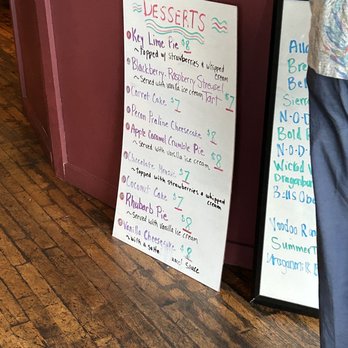 DESSERTS
Key Lime Pie $8
~Topped w/ strawberries & whipped
cream
Blackberry-Raspberry Streusel
Tart $7
~Served with vanilla ice cream
Carrot Cake $7
Pecan Praline Cheesecake $8
Apple Caramel Crumble Pie $8
~Served with vanilla ice cream
Chocolate Mousse $7
~Topped with strawberries & whipped
cream
Coconut Cake $7
Rhubarb Pie $8
~Served with Vanilla ice cream
Vanilla Cheesecake $8
~with a
sauce
Alla
Bre
Bel
Sierr
N-O-D
Bold R
N-O-D
Wicked
Dragonba
Bells Obe
Voodoo Ran
Summer T